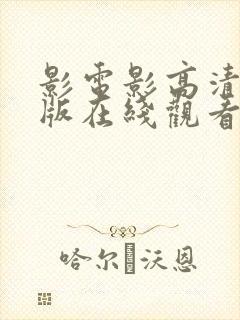 影電影高清
版在綫觀看
哈尔·沃恩